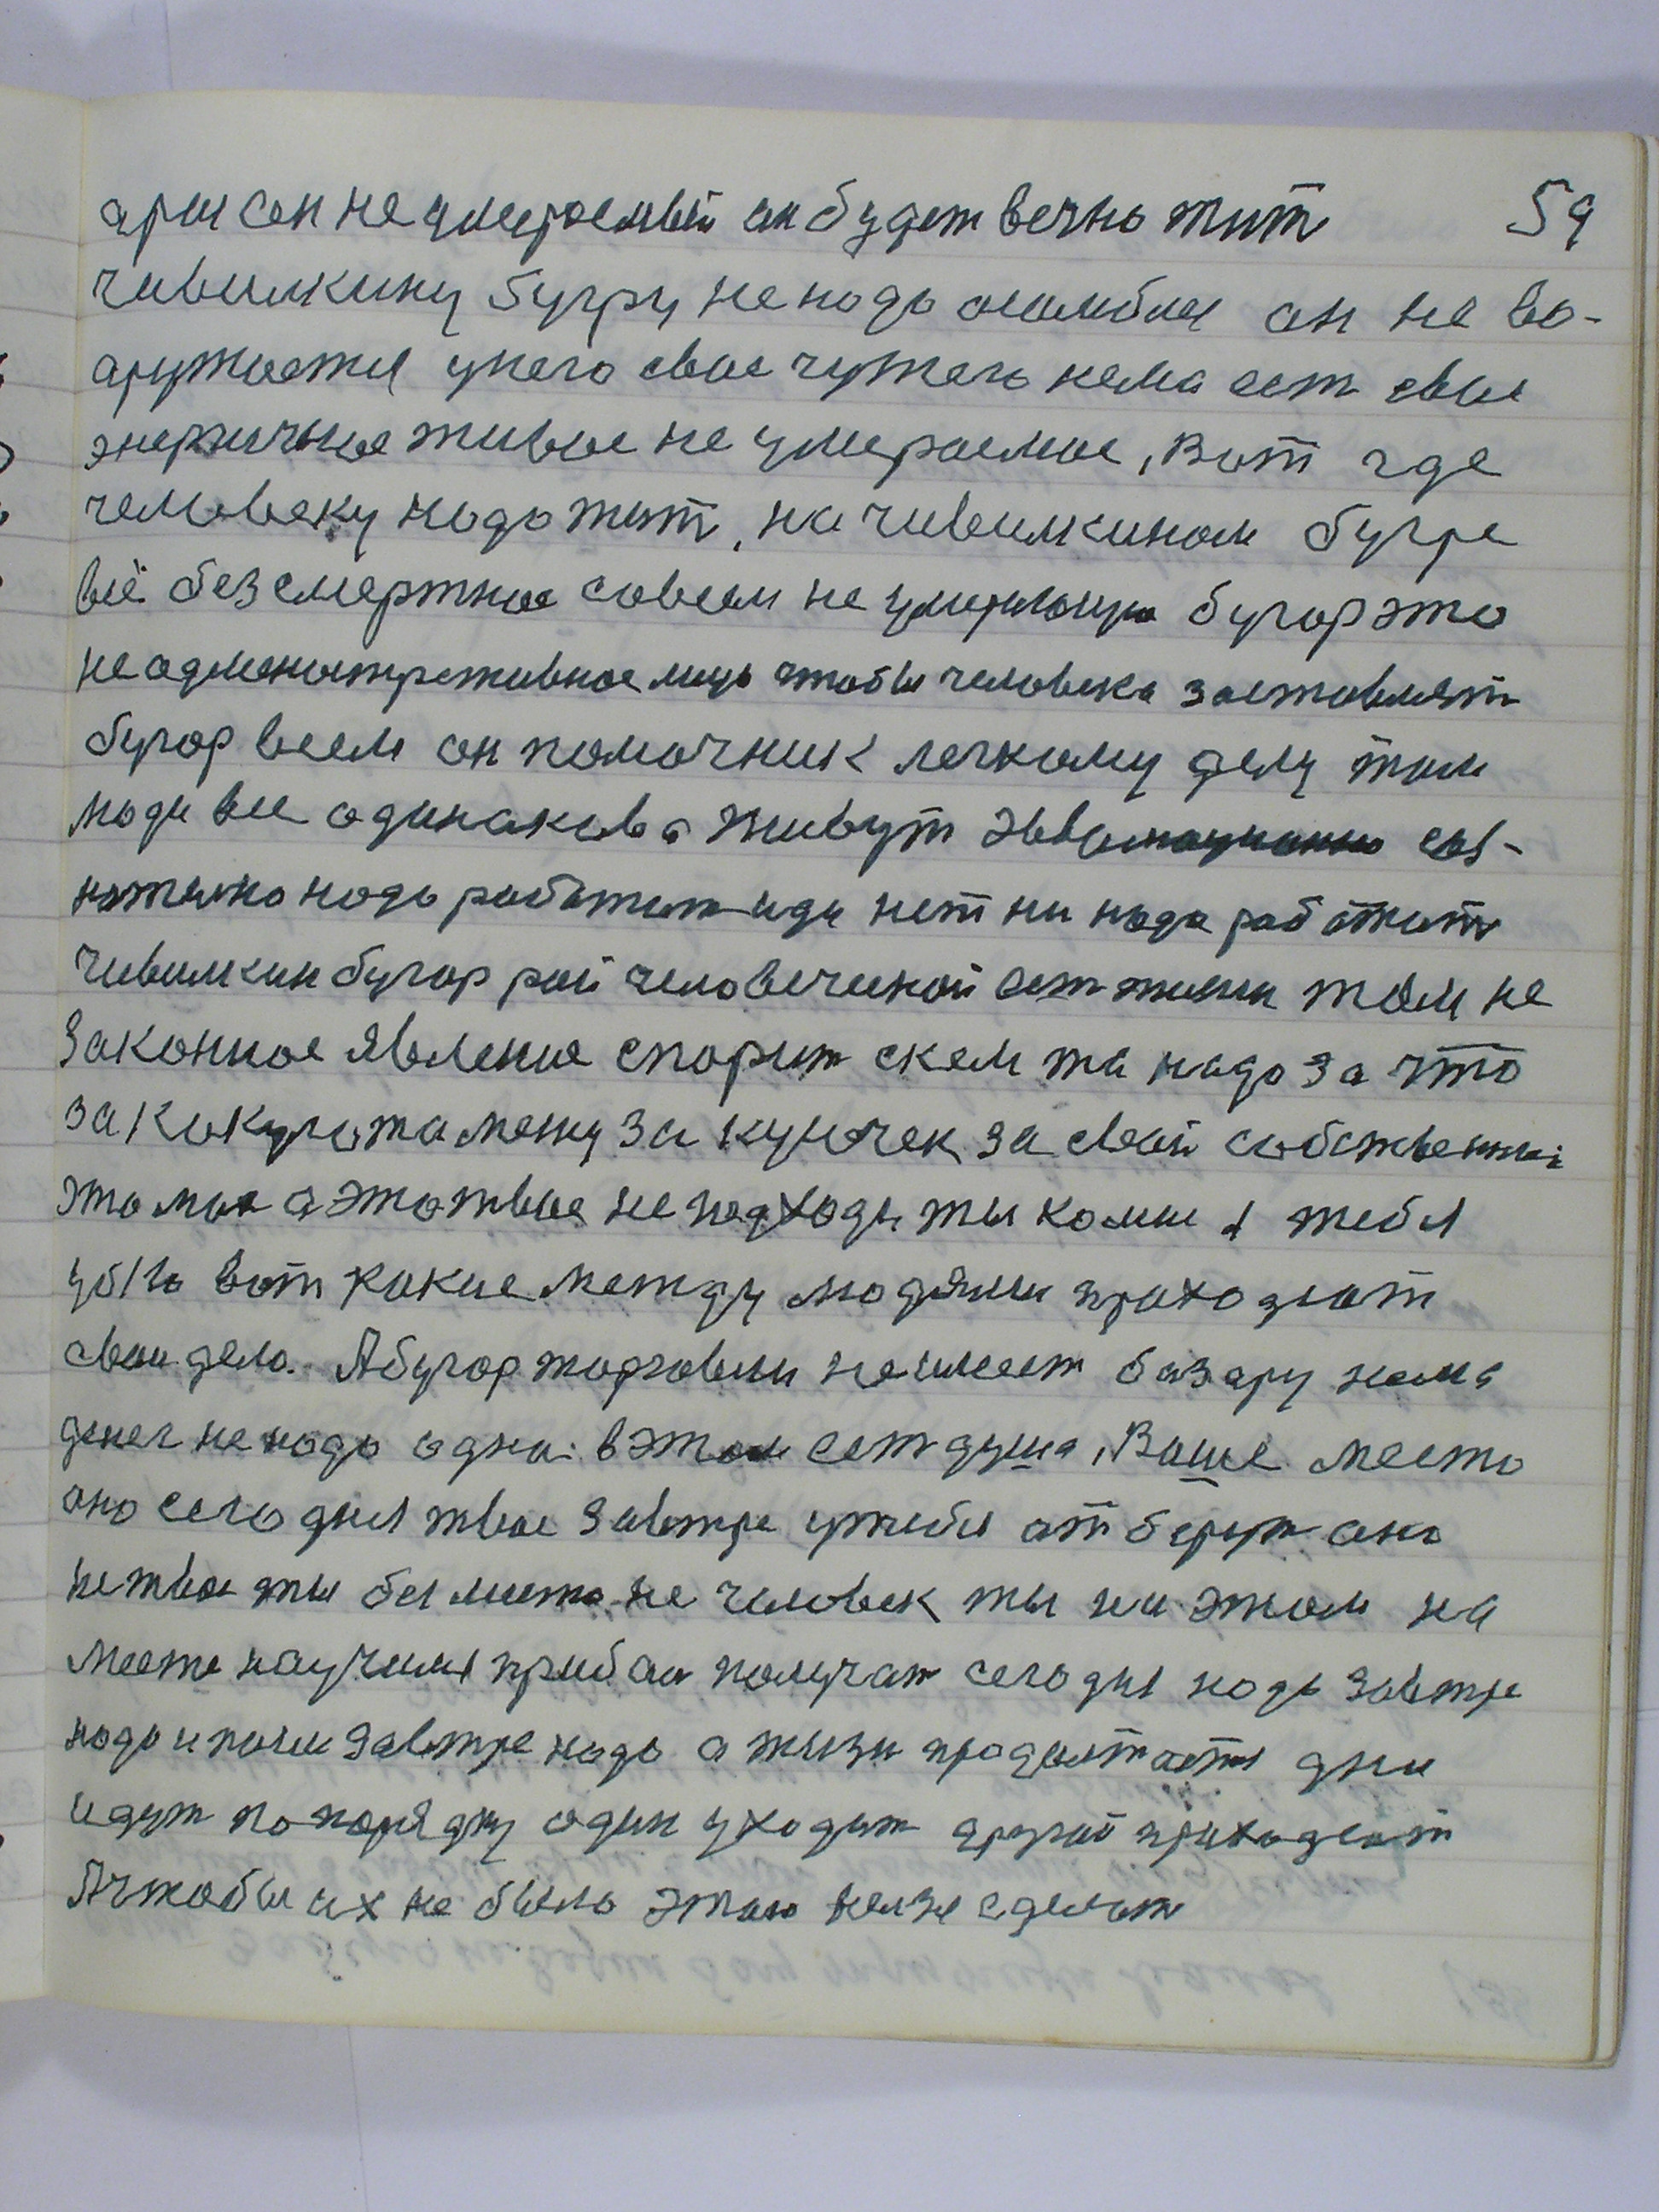 59
он не умираемый он будет вечно жит
чивилкину бугру не надо он не во-
аружается у него свае чужего нема ест свае
энергичнае живое не умераемае, Вот где
человеку надо жит, на чивилкинам бугре
всё безсмертнае савсем не бугор это
не адменистретивнае лицо чтобы человека заставлят
бугор всем он памочник легкаму делу там
люди все одинакова живут эвалюционно саз-
нательно надо работат иди нет ни нада работат
чивилкин бугор рай человеческай ест жизни там не
законнае явление спорит с кем та надо за что
за какуюта межу за кусочек за свой собственный
это мое а это твое не подходи ты ко мне я тебя
убю вот какие между людями праходят
сваи дела. А бугор торговли не имеет базару нема
денег не надо одна в этом ест душа, Ваше место
оно сегодня твое завтре у тебя отберут оно
не твое ты без места не человек ты на этом на
месте научился прибал получат сегодня надо завтре
надо и после завтре надо а жизн продолжается дни
идут по порядку один уходит другой приходит
А чтобы их не было этаго нелзя сделат